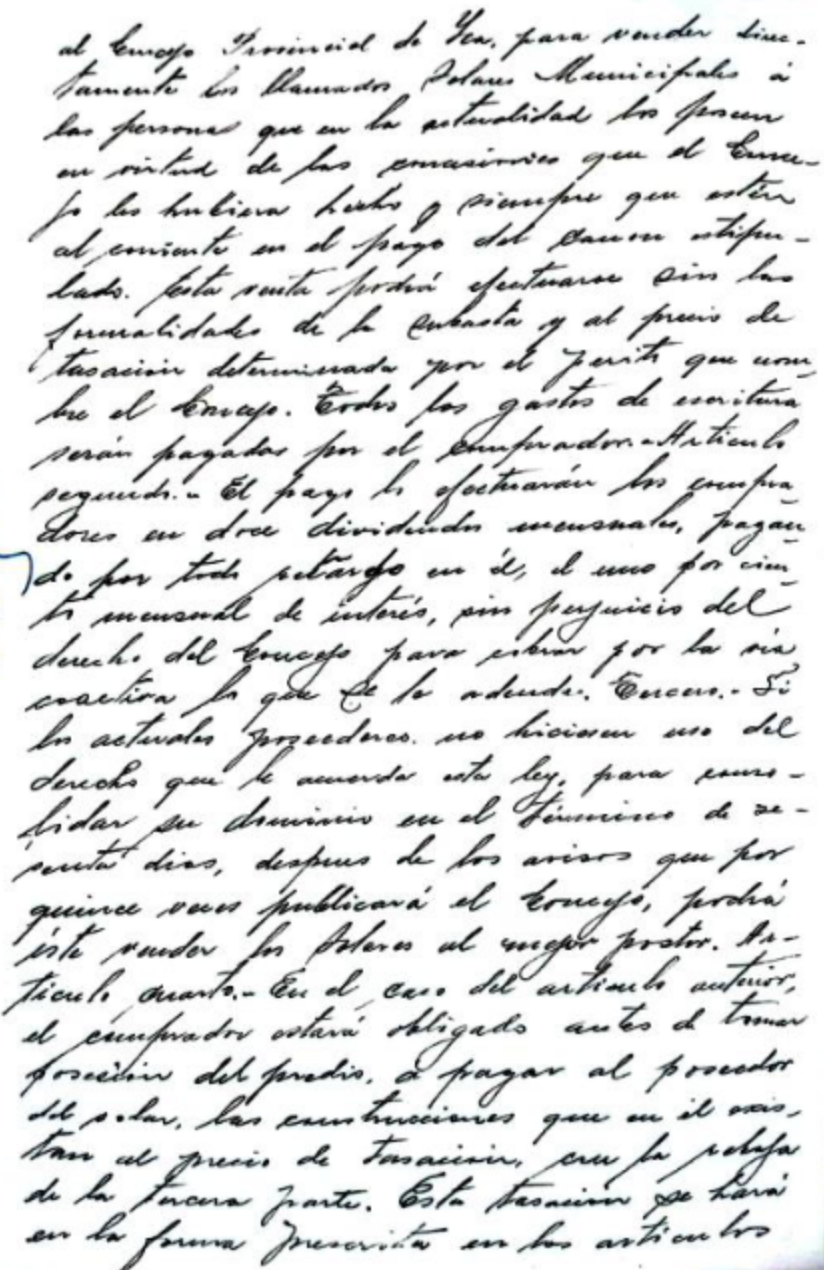 al Concejo Provincial de Yca, para vender direc-
tamente los llamados Solares Municipales á
las persona que en la actualidad los poseen
en virtud de las concesiones que el Conce-
jo les hubiera hecho y siempre que estén
al corriente en el pago del canon estipu-
lado. Esta venta podrá efectuarse sin las
formalidades de la subasta y al precio de
tasación determinada por el perito que nom-
bre el Concejo. Todos los gastos de escritura
serán pagados por el comprador.- Articulo
segundo.- El pago lo efectuarán los compra-
dores en doce dividendos mensuales, pagan-
do por todo retardo en él, el uno por cien-
to mensual de interés, sin perjuicio del
derecho del Concejo para cobrar por la via
coactiva lo que se le adende. Tercero.- Si
los actuales poseedores no hiciesen uso del
derecho que le acuerda esta ley, para conso-
lidar su dominio en el término de se-
senta dias, despues de los avisos que por
quince veces publicará el Concejo, podrá
éste vender los Solares al mejor postor. Ar-
ticulo cuarto.- En el caso del articulo anterior,
el comprador estará obligado antes de tomar
posesión del predio, a pagar al poseedor
del solar, las construcciones que en él exis-
tan al precio de tasación, con la rebaja
de la tercera parte. Esta tasación se hará
en la forma prescrita en los articulos